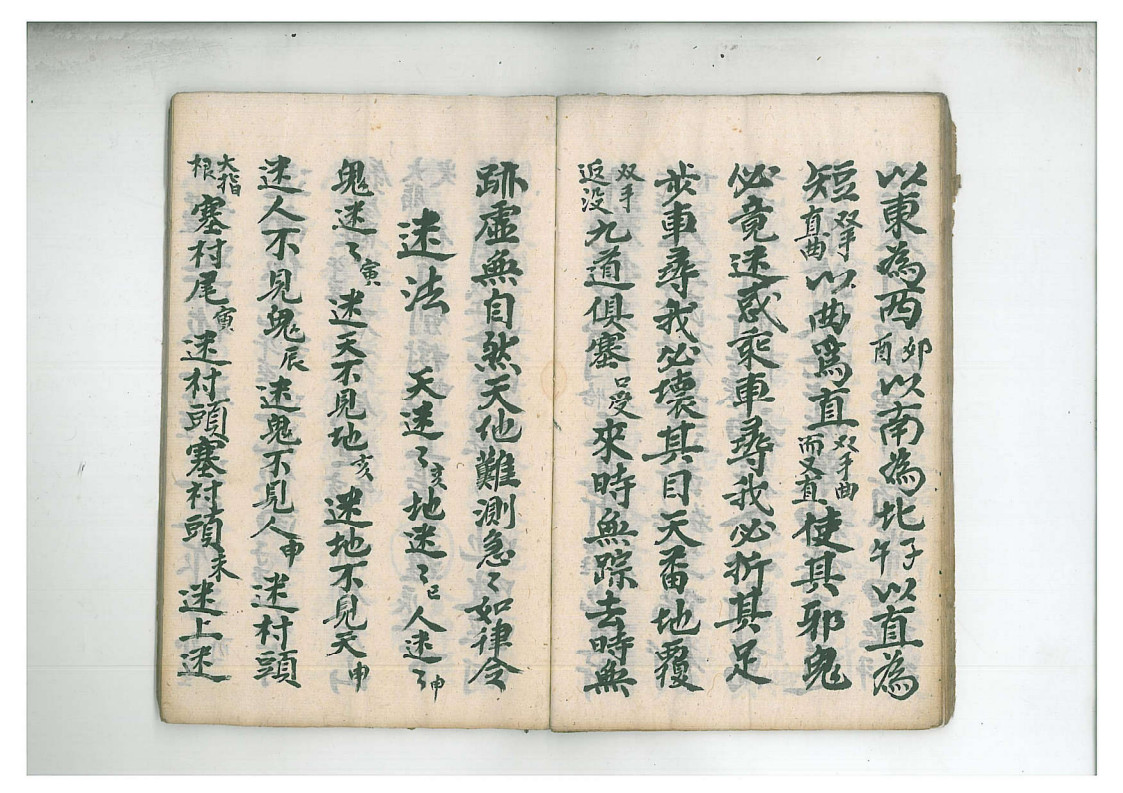 以東為西卯酉以南為北子午以直為
短双手直曲以曲為直双手曲而又直使其邪鬼
必竟迷惑乘車尋我必折其足
步車尋我必壞其目天番地覆
双手返没九道俱塞口受來時無踪去時無
跡虛無自然天他難測急〻如律令
迷法 天迷〻亥地迷〻巳人迷〻申
鬼迷〻寅迷天不見地亥迷地不見天申
迷人不見鬼辰迷鬼不見人申迷村頭
大指根塞村尾寅迷村頭塞村頭未迷上迷